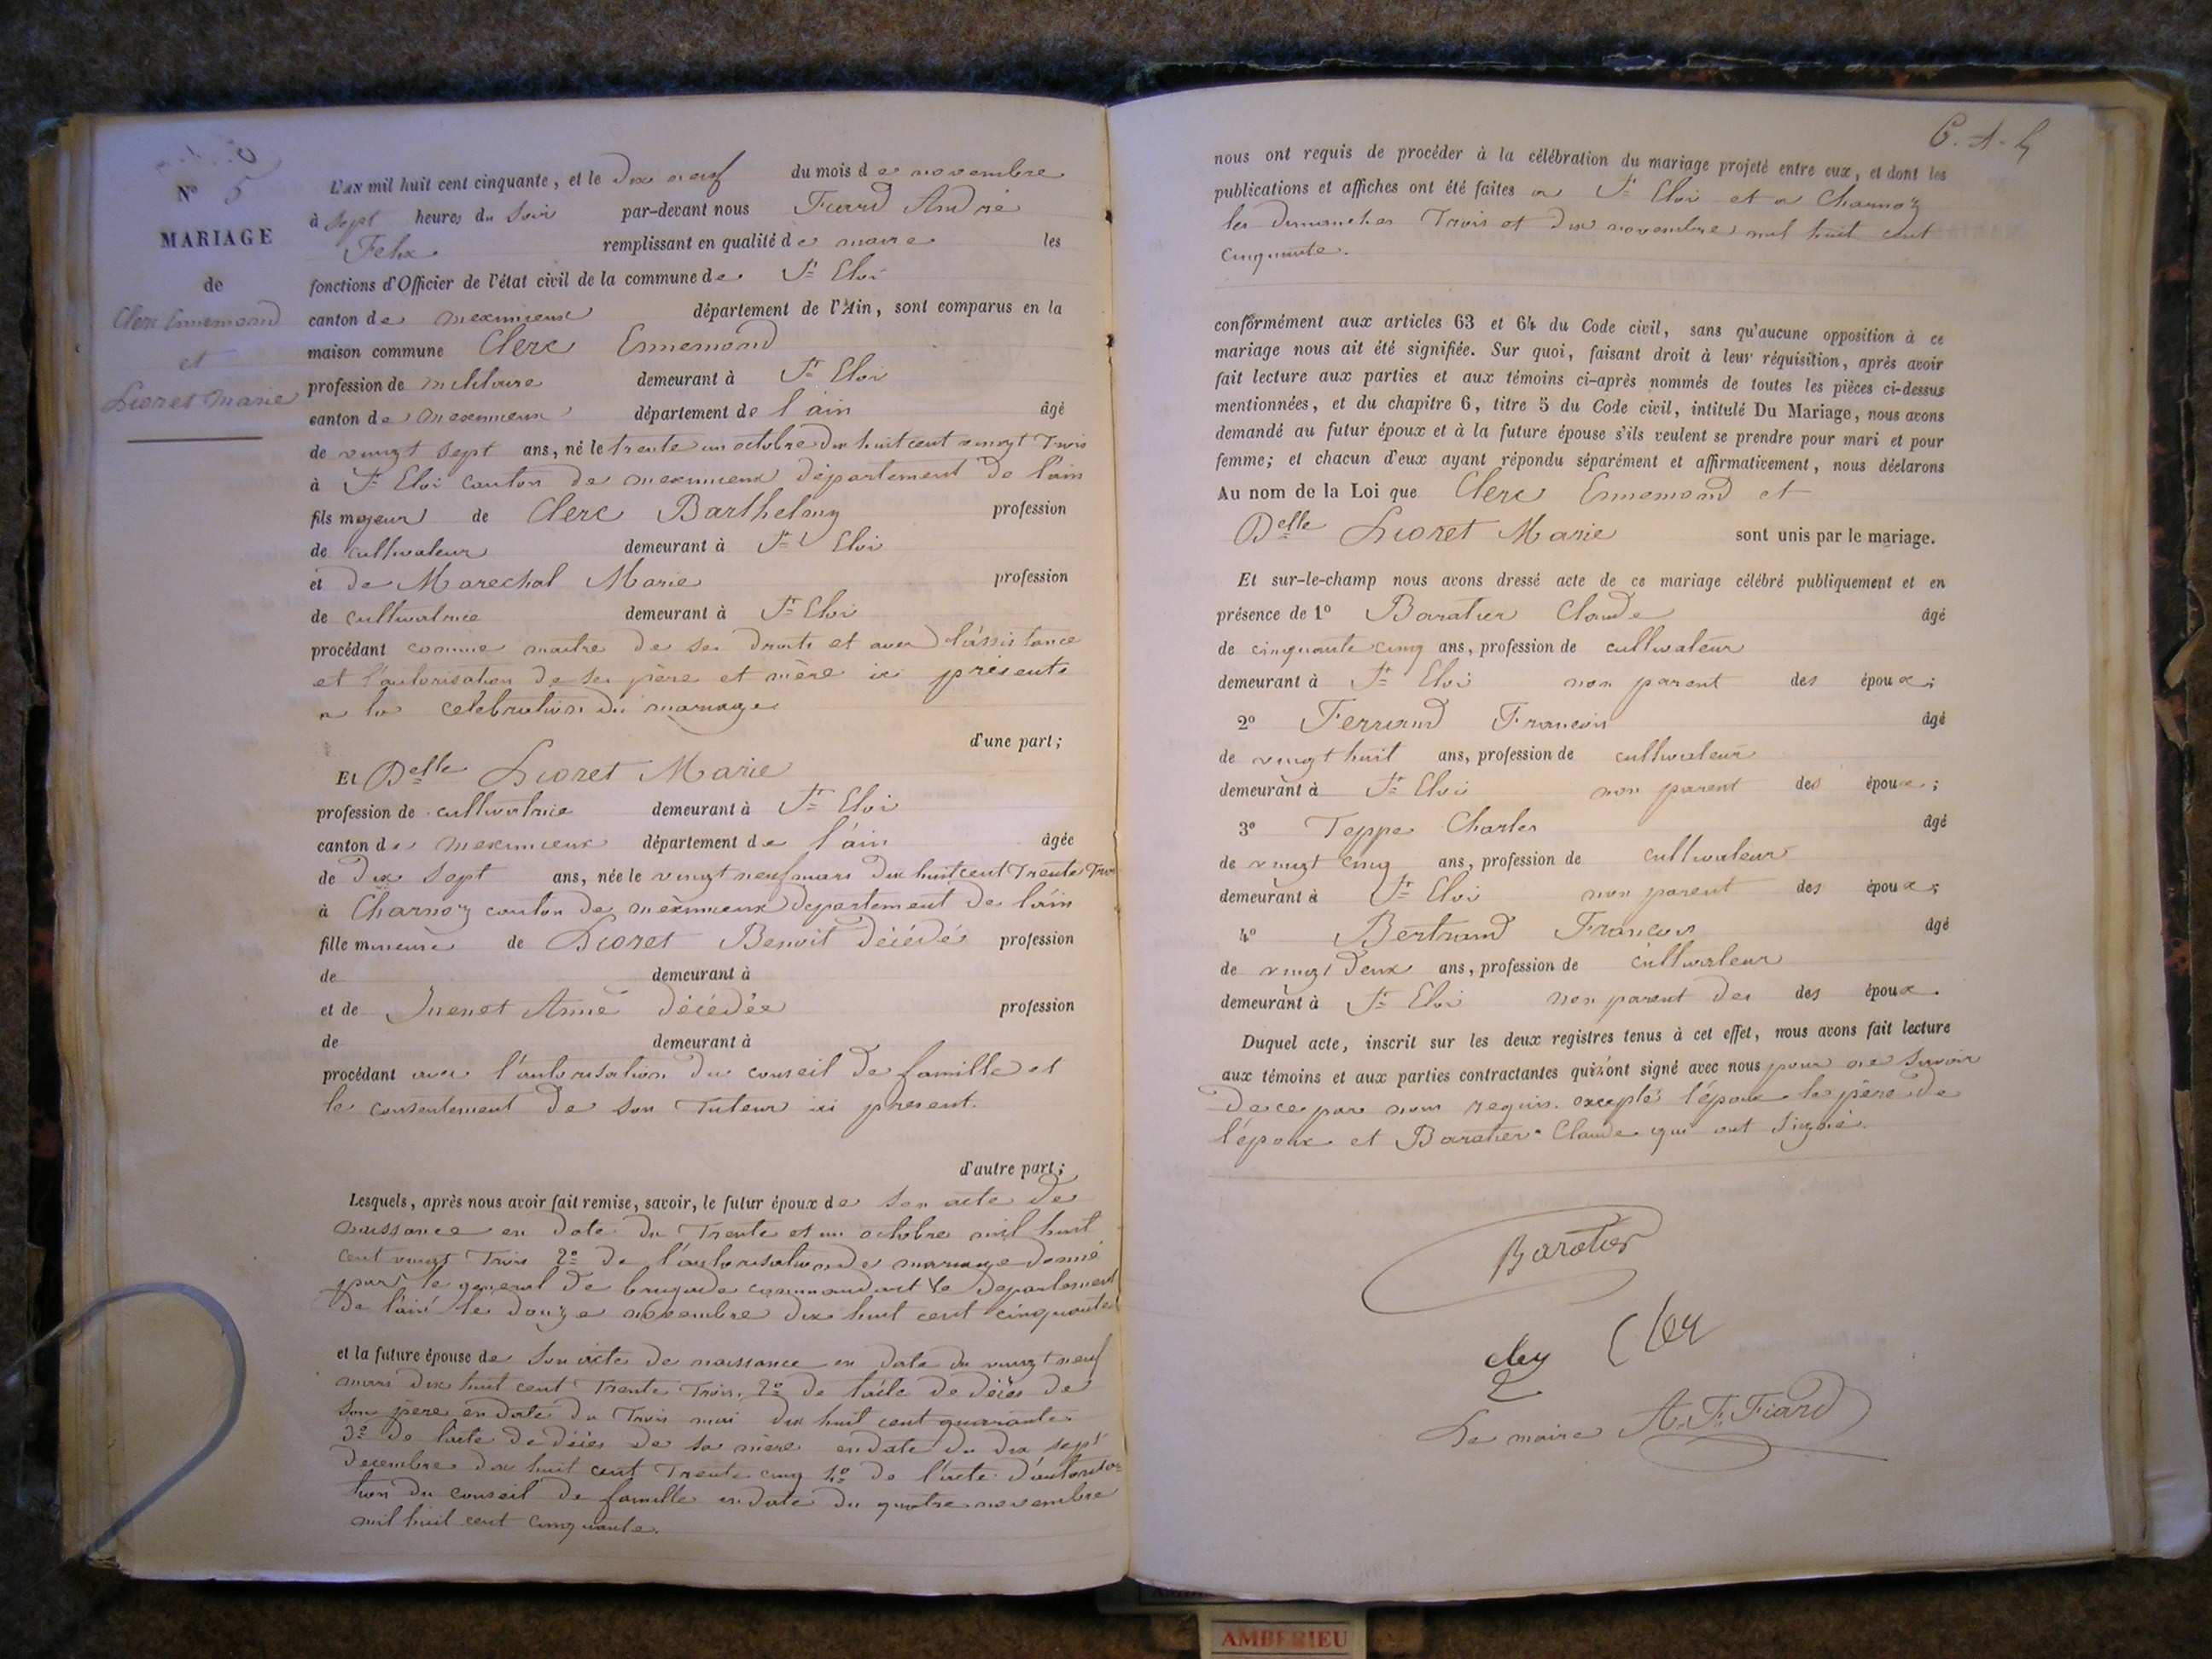 N° 5
MARIAGE
de
Clerc Ennemond
et
Lioret Marie
L'AN mil huit cent cinquante, et le dix neuf du mois de novembre
à sept heures du soir par-devant nous Fiard André
Felix remplissant en qualité de maire les
fonctions d'Officier de l'état civil de la commune de St Eloi
canton de meximieux département de l'Ain, sont comparus en la
maison commune Clerc Ennemond
profession de militaire demeurant à St Eloi
canton de meximieux département de l'ain âgé
de vingt sept ans, né le trente un octobre dix huit cent vingt Trois
à St Eloi canton de meximieux département de l'ain
fils majeur de Clerc Barthelmy profession
de cultivateur demeurant à St Eloi
et de Marechal Marie profession
de cultivatrice demeurant à St Eloi
procédant comme maitre de ses droits et avec l'assistance
et l'autorisation de ses père et mère ici présents
a la celebration du mariage
d'une part;
Et Delle Lioret Marie
profession de cultivatrice demeurant à St Eloi
canton de meximieux département de l'ain âgée
de dix sept ans, née le vingt neuf mars dix huit cent Trente Trois
à Charnoz canton de meximieux departement de l'ain
fille mineure de Lioret Benoit décédé profession
de demeurant à
et de Anne décédée profession
de demeurant à
procédant avec l'autorisation du conseil de famille et
le consentement de son Tuteur ici present.
d'autre part;
Lesquels, après nous avoir fait remise, savoir, le futur époux de son acte de
naissance en date du Trente et un octobre mil huit
cent vingt Trois 2° de l'autorisation de mariage donné
par le general de brigade commandant le departement
de l'ain le douze novembre dix huit cent cinquante
et la future épouse de son acte de naissance en date du vingt neuf
mars dix huit cent Trente Trois, 2° de l'acte de décès de
son père en date du Trois mai dix huit cent quarante
3° de l'acte de décès de sa mère en date du dix sept
decembre dix huit cent Trente cinq 4° de l'acte d'autorisa=
tion du conseil de famille en date du quatre novembre
mil huit cent cinquante.
nous ont requis de procéder à la célébration du mariage projeté entre eux, et dont les
publications et affiches ont été faites a St Eloi et a Charnoz
les dimanches Trois et dix novembre mil huit cent
cinquante.
conformément aux articles 63 et 64 du Code civil, sans qu'aucune opposition à ce
mariage nous ait été signifiée. Sur quoi, faisant droit à leur réquisition, après avoir
fait lecture aux parties et aux témoins ci-après nommés de toutes les pièces ci-dessus
mentionnées, et du chapitre 6, titre 5 du Code civil, intitulé Du Mariage, nous avons
demandé au futur époux et à la future épouse s'ils veulent se prendre pour mari et pour
femme; et chacun d'eux ayant répondu séparément et affirmativement, nous déclarons
Au nom de la Loi que Clerc Ennemond et
Delle Lioret Marie sont unis par le mariage.
Et sur-le-champ nous avons dressé acte de ce mariage célébré publiquement et en
présence de 1° Baratier Claude âgé
de cinquante cinq ans, profession de cultivateur
demeurant à St Eloi non parent des époux;
2° Ferrand Francois âgé
de vingt huit ans, profession de cultivateur
demeurant à St Eloi non parent des époux;
3° Teppe Charles âgé
de vingt cinq ans, profession de cultivateur
demeurant à St Eloi non parent des époux;
4° Bertrand Francois âgé
de vingt deux ans, profession de cultivateur
demeurant à St Eloi non parent des des époux.
Duquel acte, inscrit sur les deux registres tenus à cet effet, nous avons fait lecture
aux témoins et aux parties contractantes qui n'ont signé avec nous pour ne savoir
de ce par nous requis. excepté l'époux le père de
l'époux et Baratier Claude qui ont signé.
Baratier
Le maire A. F. Fiard
AMBERIEU